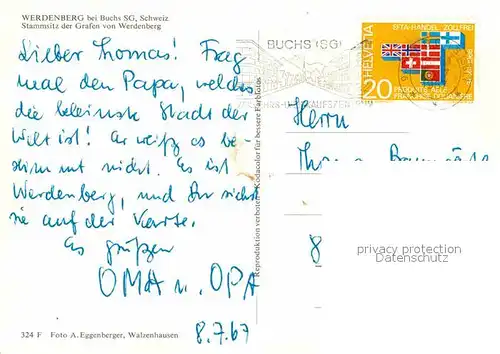 WERDENBERG bei Buchs SG, Schweiz
Stammsitz der Grafen von Werdenberg
Lieber Thomas! Frag
mal den Papa, welches
die kleinste Stadt der
Welt ist! Er weiß es be-
stimmt nicht. Es ist
Werdenberg, und Du siehst
sie auf der Karte.
Es grüßen
OMA u. OPA
8.7.67
324 F Foto A. Eggenberger, Walzenhausen
Reproduktion verboten • Kodacolor für bessere Farbfotos
BUCHS (SG)
EFTA-HANDEL ZOLLFREI
HELVETIA
20
Herrn
8
privacy protection
Datenschutz